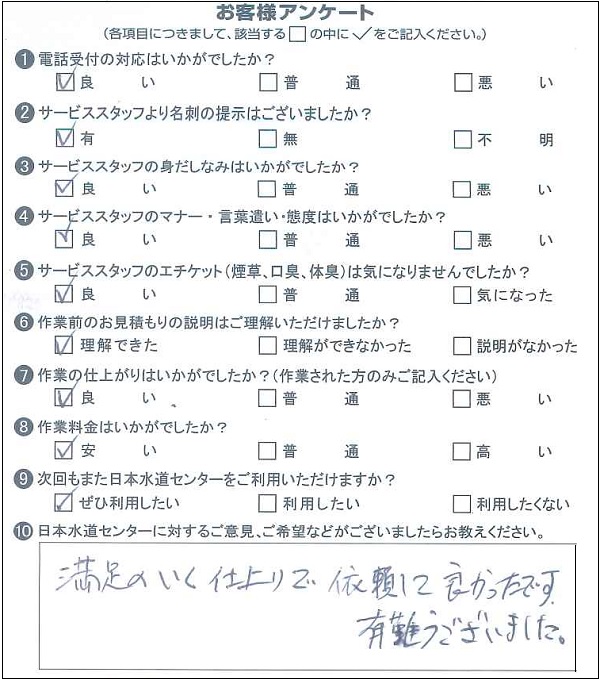 お客様アンケート
(各項目につきまして、該当する□の中に✓をご記入ください。)
❶電話受付の対応はいかがでしたか?
☑良い □普通 □悪い
❷サービススタッフより名刺の提示はございましたか?
☑有 □無 □不明
❸サービススタッフの身だしなみはいかがでしたか?
☑良い □普通 □悪い
❹サービススタッフのマナー・言葉遣い・態度はいかがでしたか?
☑良い □普通 □悪い
❺サービススタッフのエチケット(煙草、口臭、体臭)は気になりませんでしたか?
☑良い □普通 □気になった
❻作業前のお見積もりの説明はご理解いただけましたか?
☑理解できた □理解ができなかった □説明がなかった
❼作業の仕上がりはいかがでしたか?(作業された方のみご記入ください)
☑良い □普通 □悪い
❽作業料金はいかがでしたか?
☑安い □普通 □高い
❾次回もまた日本水道センターをご利用いただけますか?
☑ぜひ利用したい □利用したい □利用したくない
❿日本水道センターに対するご意見、ご希望などがございましたらお教えください。
満足のいく仕上りで依頼して良かったです
有難うございました。